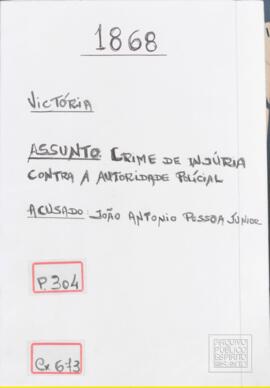 1868
VICTÓRIA
ASSUNTO: CRIME DE INJÚRIA
CONTRA A AUTORIDADE POLICIAL
ACUSADO: JOÃO ANTONIO PESSOA JÚNIOR
P. 304
Cx 673
ARQUIVO
PÚBLICO
ESPÍRITO
SANTO